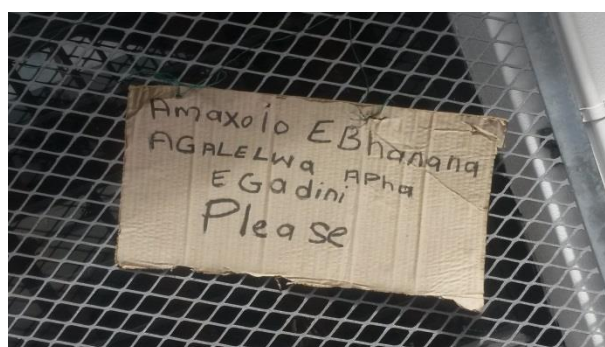 Amaxolo EBhanana
AGALELWa APha
EGadini
Please